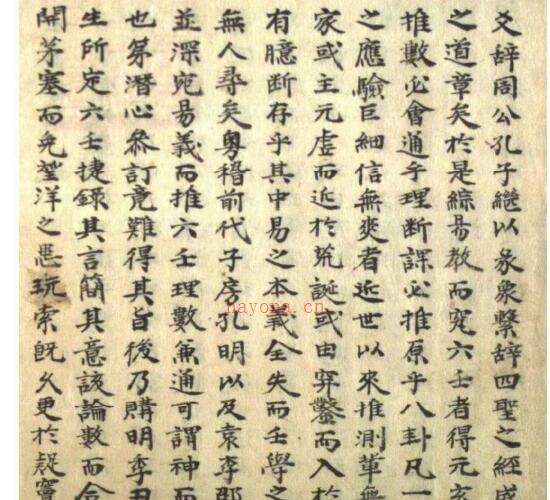 爻辞周公孔子繼以彖象繫辞四聖之經
之道章矣於是綜易教而究六壬者得元
推數必會通乎理断課必推原乎八卦凡一
之應驗巨細信無爽者近世以來推測輩無
家或主元虚而近於荒誕或由穿鑿而入於
有臆断存乎其中易之本義全失而壬學之
無人尋矣粤稽前代子房孔明以及袁李邵
並深宛易義而推六壬理數兼通可謂神而
也第潜心参訂竟難得其旨後乃購明季
生所定六壬捷録其言簡其意該論數而合
開茅塞而免望洋之玩索既久更於疑竇
nayona.cn